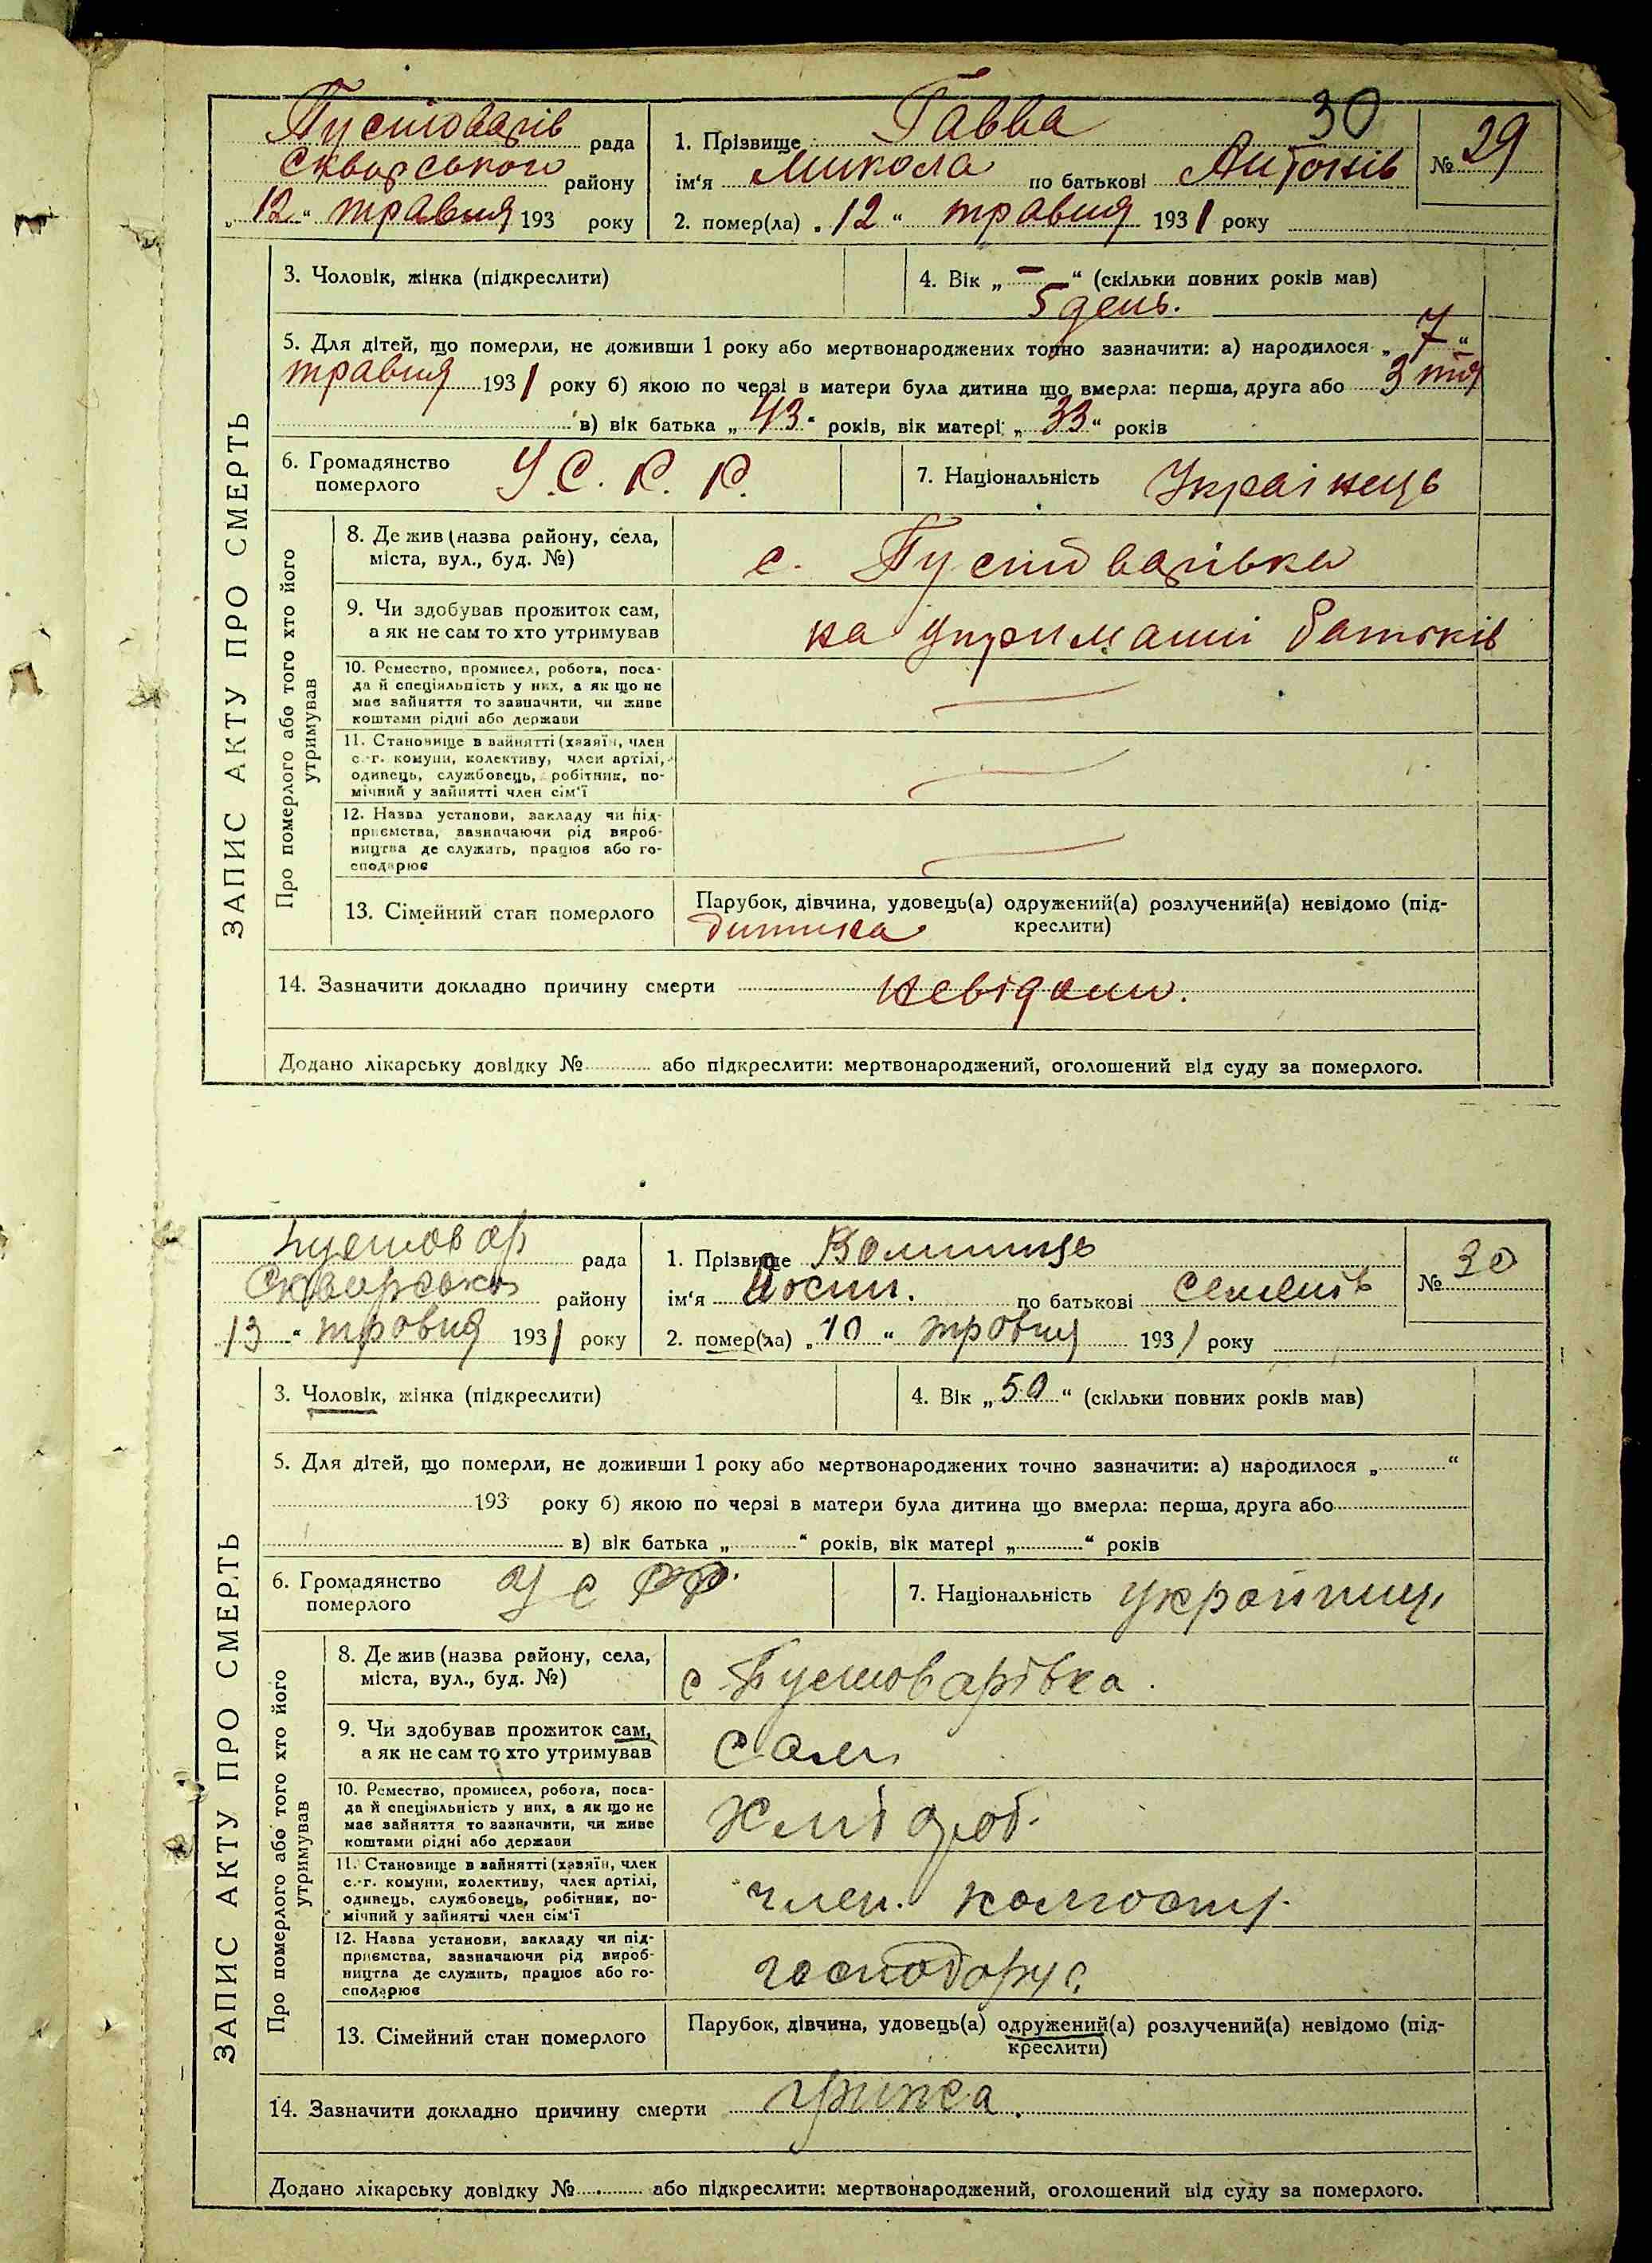 30
Пустоварів рада
Сквирського району
„12“ травня 193 року
1. Прізвище Гавва
ім'я Микола по батькові Антонів
2. помер(ла) „12“ травня 1931 року
№ 29
ЗАПИС АКТУ ПРО СМЕРТЬ
3. Чоловік, жінка (підкреслити)
4. Вік „—“ (скільки повних років мав)
5 день.
5. Для дітей, що померли, не доживши 1 року або мертвонароджених точно зазначити: а) народилося „7“
травня 1931 року б) якою по черзі в матери була дитина що вмерла: перша, друга або 3 тя
в) вік батька „43“ років, вік матері „33“ років
6. Громадянство померлого У.С.Р.Р.
7. Національність Українець
Про померлого або того хто його утримував
8. Де жив (назва району, села,
міста, вул., буд. №)
с. Пустоварівка
9. Чи здобував прожиток сам,
а як не сам то хто утримував
на утриманні батьків
10. Ремество, промисел, робота, поса-
да й спеціяльність у них, а як що не
має зайняття то зазначити, чи живе
коштами рідні або держави
—
11. Становище в зайнятті (хазяїн, член
с.-г. комуни, колективу, член артілі,
одинець, службовець, робітник, по-
мічний у зайнятті член сім'ї
—
12. Назва установи, закладу чи під-
приємства, зазначаючи рід вироб-
ництва де служить, працює або го-
сподарює
—
13. Сімейний стан померлого
Парубок, дівчина, удовець(а) одружений(а) розлучений(а) невідомо (під-
креслити)
дитина
14. Зазначити докладно причину смерти невідомо.
Додано лікарську довідку № або підкреслити: мертвонароджений, оголошений від суду за померлого.
Пустовар рада
району
13 “ травня 1931 року
1. Прізвище
ім'я по батькові Семенів
2. помер(ла) „10“ травня 1931 року
№ 30
ЗАПИС АКТУ ПРО СМЕРТЬ
3. Чоловік, жінка (підкреслити)
4. Вік „50“ (скільки повних років мав)
5. Для дітей, що померли, не доживши 1 року або мертвонароджених точно зазначити: а) народилося „ “
193 року б) якою по черзі в матери була дитина що вмерла: перша, друга або
в) вік батька „ “ років, вік матері „ “ років
6. Громадянство померлого УСРР.
7. Національність
Про померлого або того хто його утримував
8. Де жив (назва району, села,
міста, вул., буд. №)
с Пустоварівка.
9. Чи здобував прожиток сам,
а як не сам то хто утримував
сам
10. Ремество, промисел, робота, поса-
да й спеціяльність у них, а як що не
має зайняття то зазначити, чи живе
коштами рідні або держави
хлібороб.
11. Становище в зайнятті (хазяїн, член
с.-г. комуни, колективу, член артілі,
одинець, службовець, робітник, по-
мічний у зайнятті член сім'ї
член.
12. Назва установи, закладу чи під-
приємства, зазначаючи рід вироб-
ництва де служить, працює або го-
сподарює
господарує
13. Сімейний стан померлого
Парубок, дівчина, удовець(а) одружений(а) розлучений(а) невідомо (під-
креслити)
14. Зазначити докладно причину смерти
Додано лікарську довідку № або підкреслити: мертвонароджений, оголошений від суду за померлого.